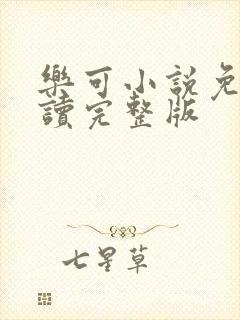 樂可小說免
讀完整版
七星草